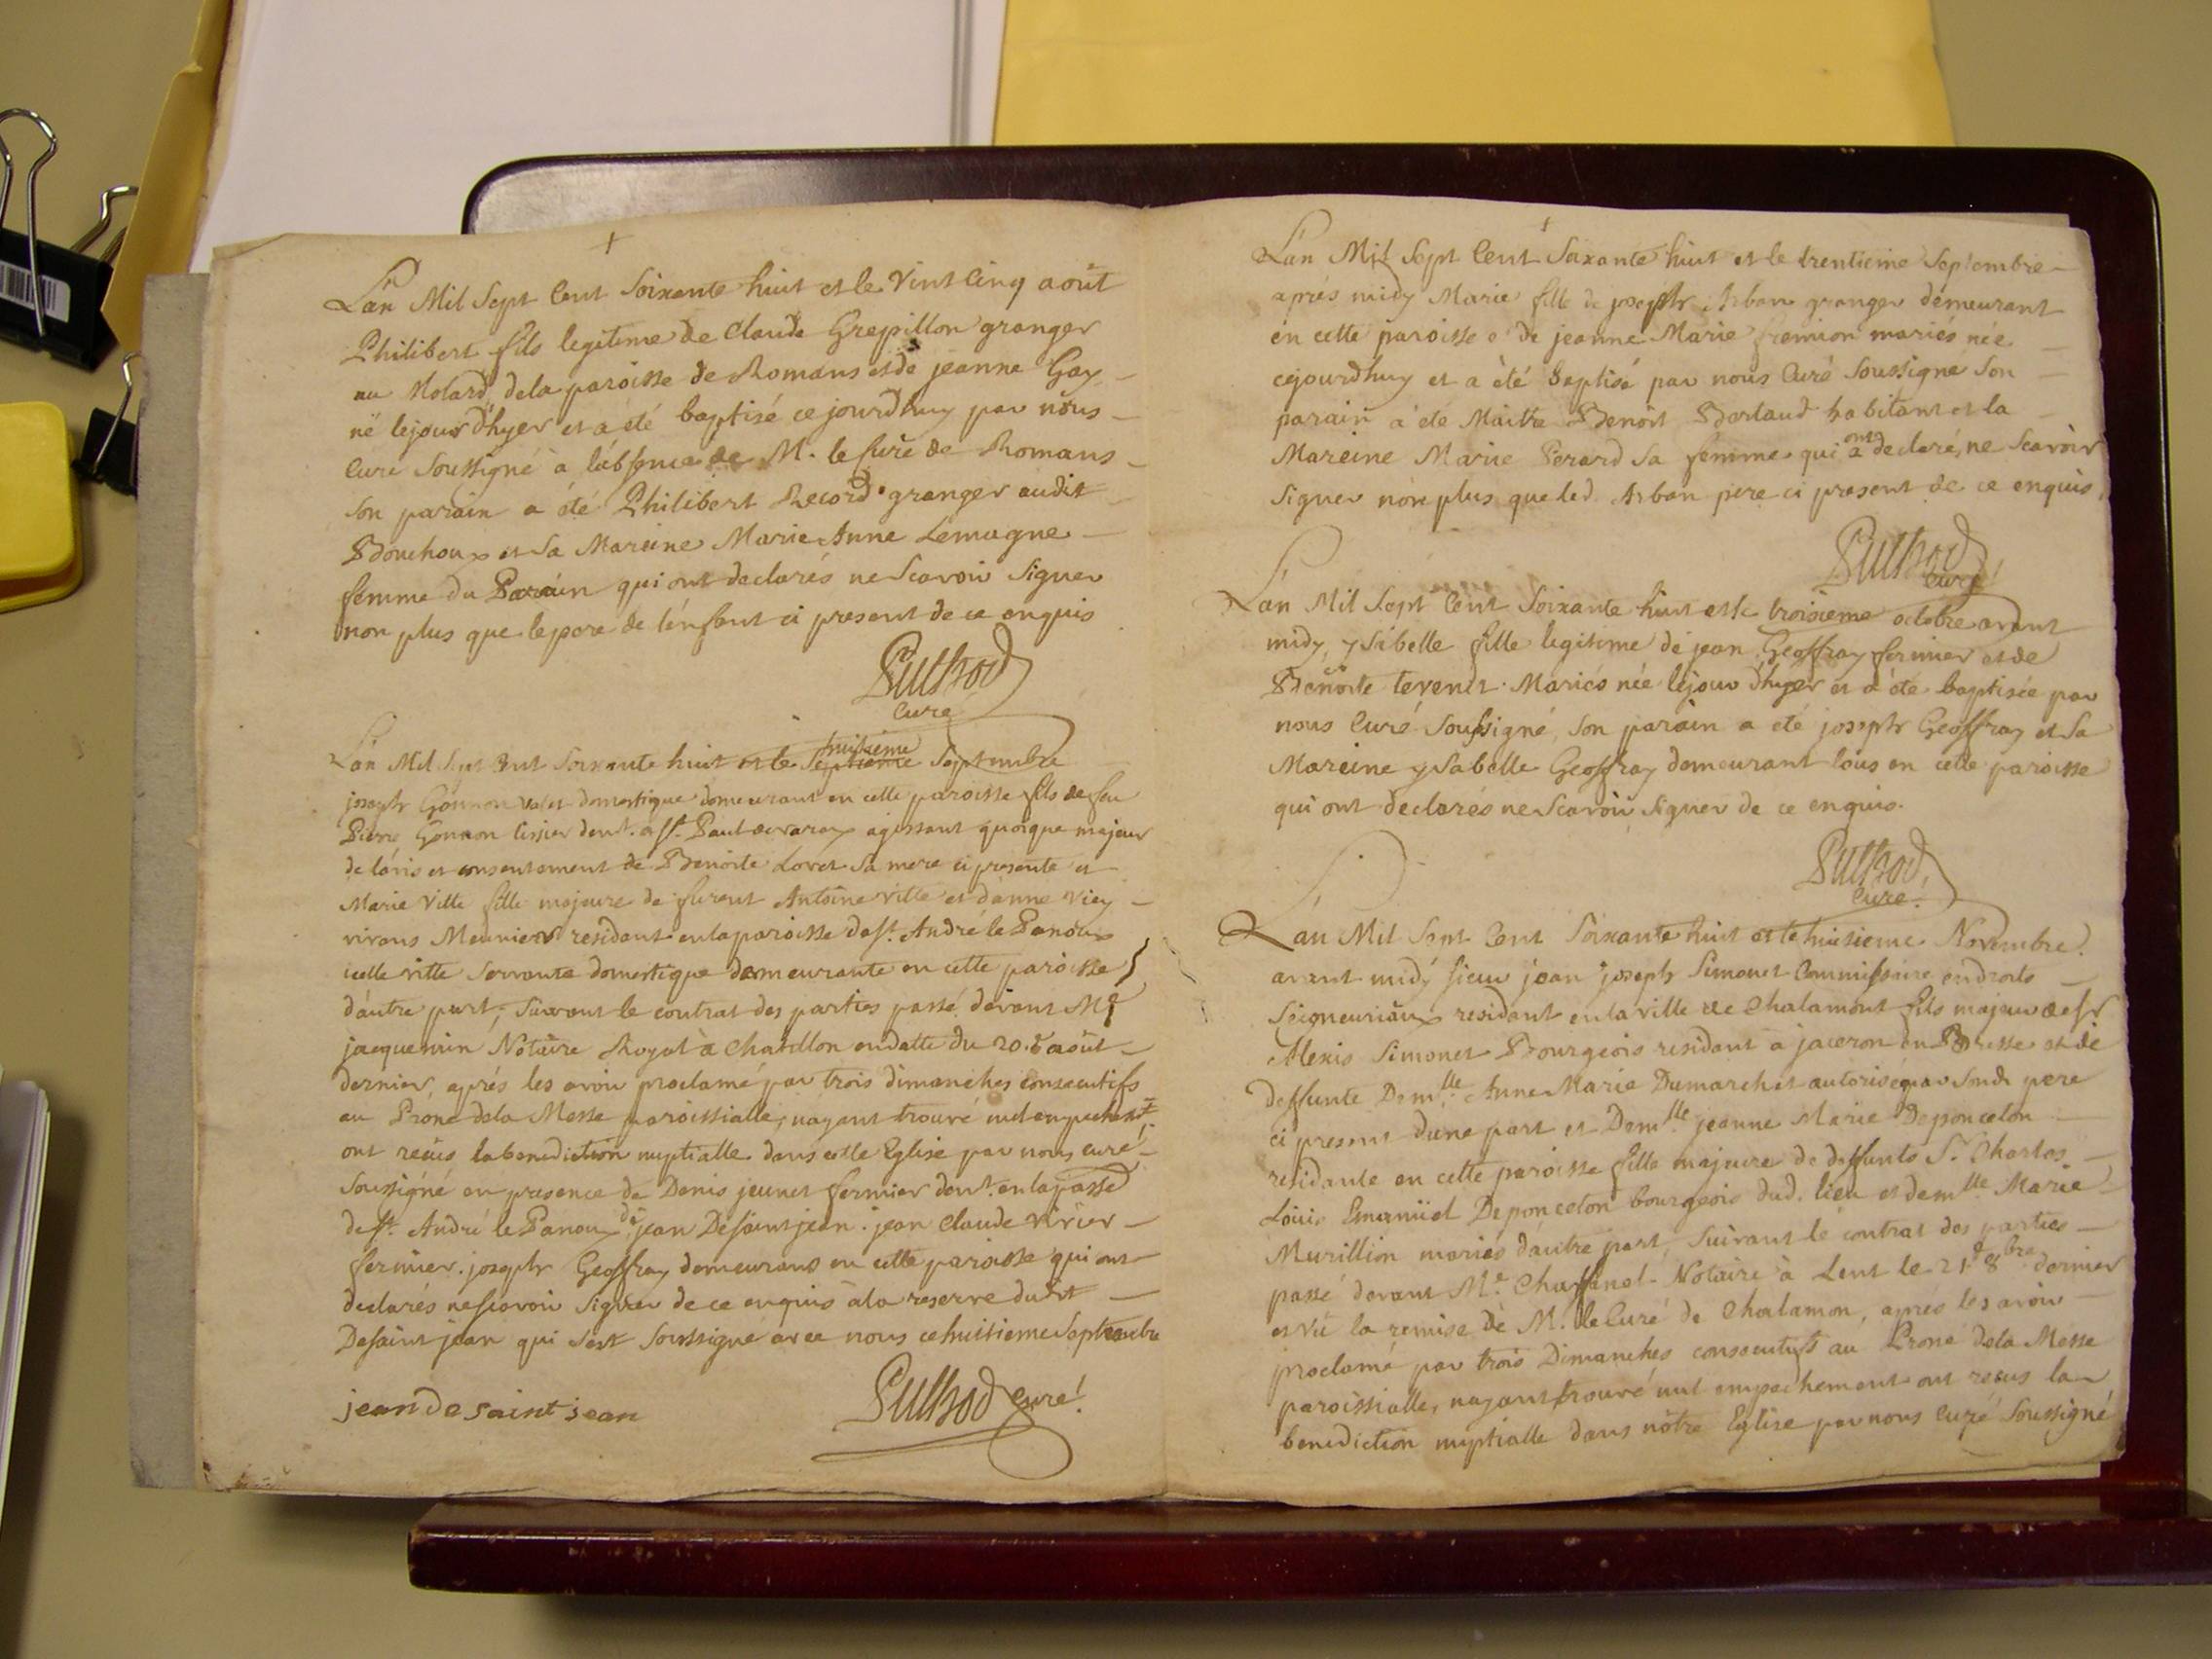 Lan Mil Sept Cent Soixante huit et le Vint Cinq août
Philibert fils legitime de Claude Grepillon granger
au Molard, dela paroisse de Romans et de jeanne Gay
né lejour d'hyer et a été baptisé ce jourdhuy par nous
Curé Soussigné à l'absence de M. le Curé de Romans
Son parain a été Philibert Record granger audit
Bouchoux et Sa Mareine Marie Anne Lemugne
femme du Parain qui ont declarés ne Scavoir Signer
non plus que lepere de l'enfant ci present de ce enquis
Curé
Lan Mil Sept Cent Soixante huit et le Septieme huitieme Septembre
joseph Gonnon valet domestique demeurant en cette paroisse fils de feu
Pierre Gonnon tissier demt. a st. Paul de varax agissant quoique majeur
de lavis et consentement de Benoite Loret Sa mere ci presente et
Marie Ville fille majeure de furent Antoine ville et danne viey
vivans Meuniers residant en la paroisse de st. André le Panoux
icelle ville Servante domestique demeurante en cette paroisse
dautre part, Suivant le contrat des parties passé devant Me
jacquemin Notaire Royal à Chatillon en datte du 20. août
dernier, aprés les avoir proclamé par trois dimanches consecutifs
au Prône dela Messe paroissialle, nayant trouvé nul empechemt.
ont recûs la benediction nuptialle dans cette Eglise par nous curé
Soussigné en presence de Denis jeunet fermier demt. en la passe
de st. André le Panoux de jean Desaintjean. jean Claude virier
fermier. joseph Geoffray demeurans en cette paroisse qui ont
declarés ne scavoir Signer de ce enquis à la reserve dudit
Desaint jean qui Sest Soussigné avec nous ce huitieme Septembre
jean de saint jean
curé
Lan Mil Sept Cent Soixante huit et le trentieme Septembre
aprés midy Marie fille de joseph Arban granger demeurant
en cette paroisse e de jeanne Marie fremion mariés née
cejourdhuy et a été Baptisé par nous Curé Soussigné Son
parain a été Maitre Benoit Borlaud habitant et la
Mareine Marie Perard Sa femme qui a ont declaré, ne Scavoir
Signer non plus que led. Arban pere ci present de ce enquis
Curé
Lan Mil Sept Cent Soixante huit et le troisieme octobre avant
midy, ysabelle fille legitime de jean Geoffray fermier et de
Benoite tevenet Mariés née lejour dhyer et a été baptisée par
nous Curé Soussigné, Son parain a eté joseph Geoffray et Sa
Mareine ysabelle Geoffray demeurant tous en cette paroisse
qui ont declarés ne Scavoir Signer de ce enquis.
Curé
Lan Mil Sept Cent Soixante huit et le huitieme Novembre
avant midy sieur jean joseph Simonet Commissaire en droits
Seigneuriaux residant en la ville de Chalamont fils majeur de sr
Alexis Simonet Bourgeois residant à jaceron en Bresse et de
deffunte Demlle. Anne Marie Dumarchet autorisé par Sond. pere
ci present dune part et Demlle. jeanne Marie Deponceton
residante en cette paroisse fille majeure de deffunts Sr. Charles
Louis Emanuel Deponceton bourgeois dud. lieu et demlle Marie
Murillion mariés dautre part, Suivant le contrat des parties
passé devant Me. Chaffanel Notaire à Lent le 21e 8bre dernier
et vû la remise de M. le Curé de Chalamon, aprés les avoir
proclamé par trois Dimanches consecutifs au Prone dela Messe
paroissialle, nayant trouvé nul empechement ont recus la
benediction nuptialle dans nôtre Eglise par nous Curé Soussigné